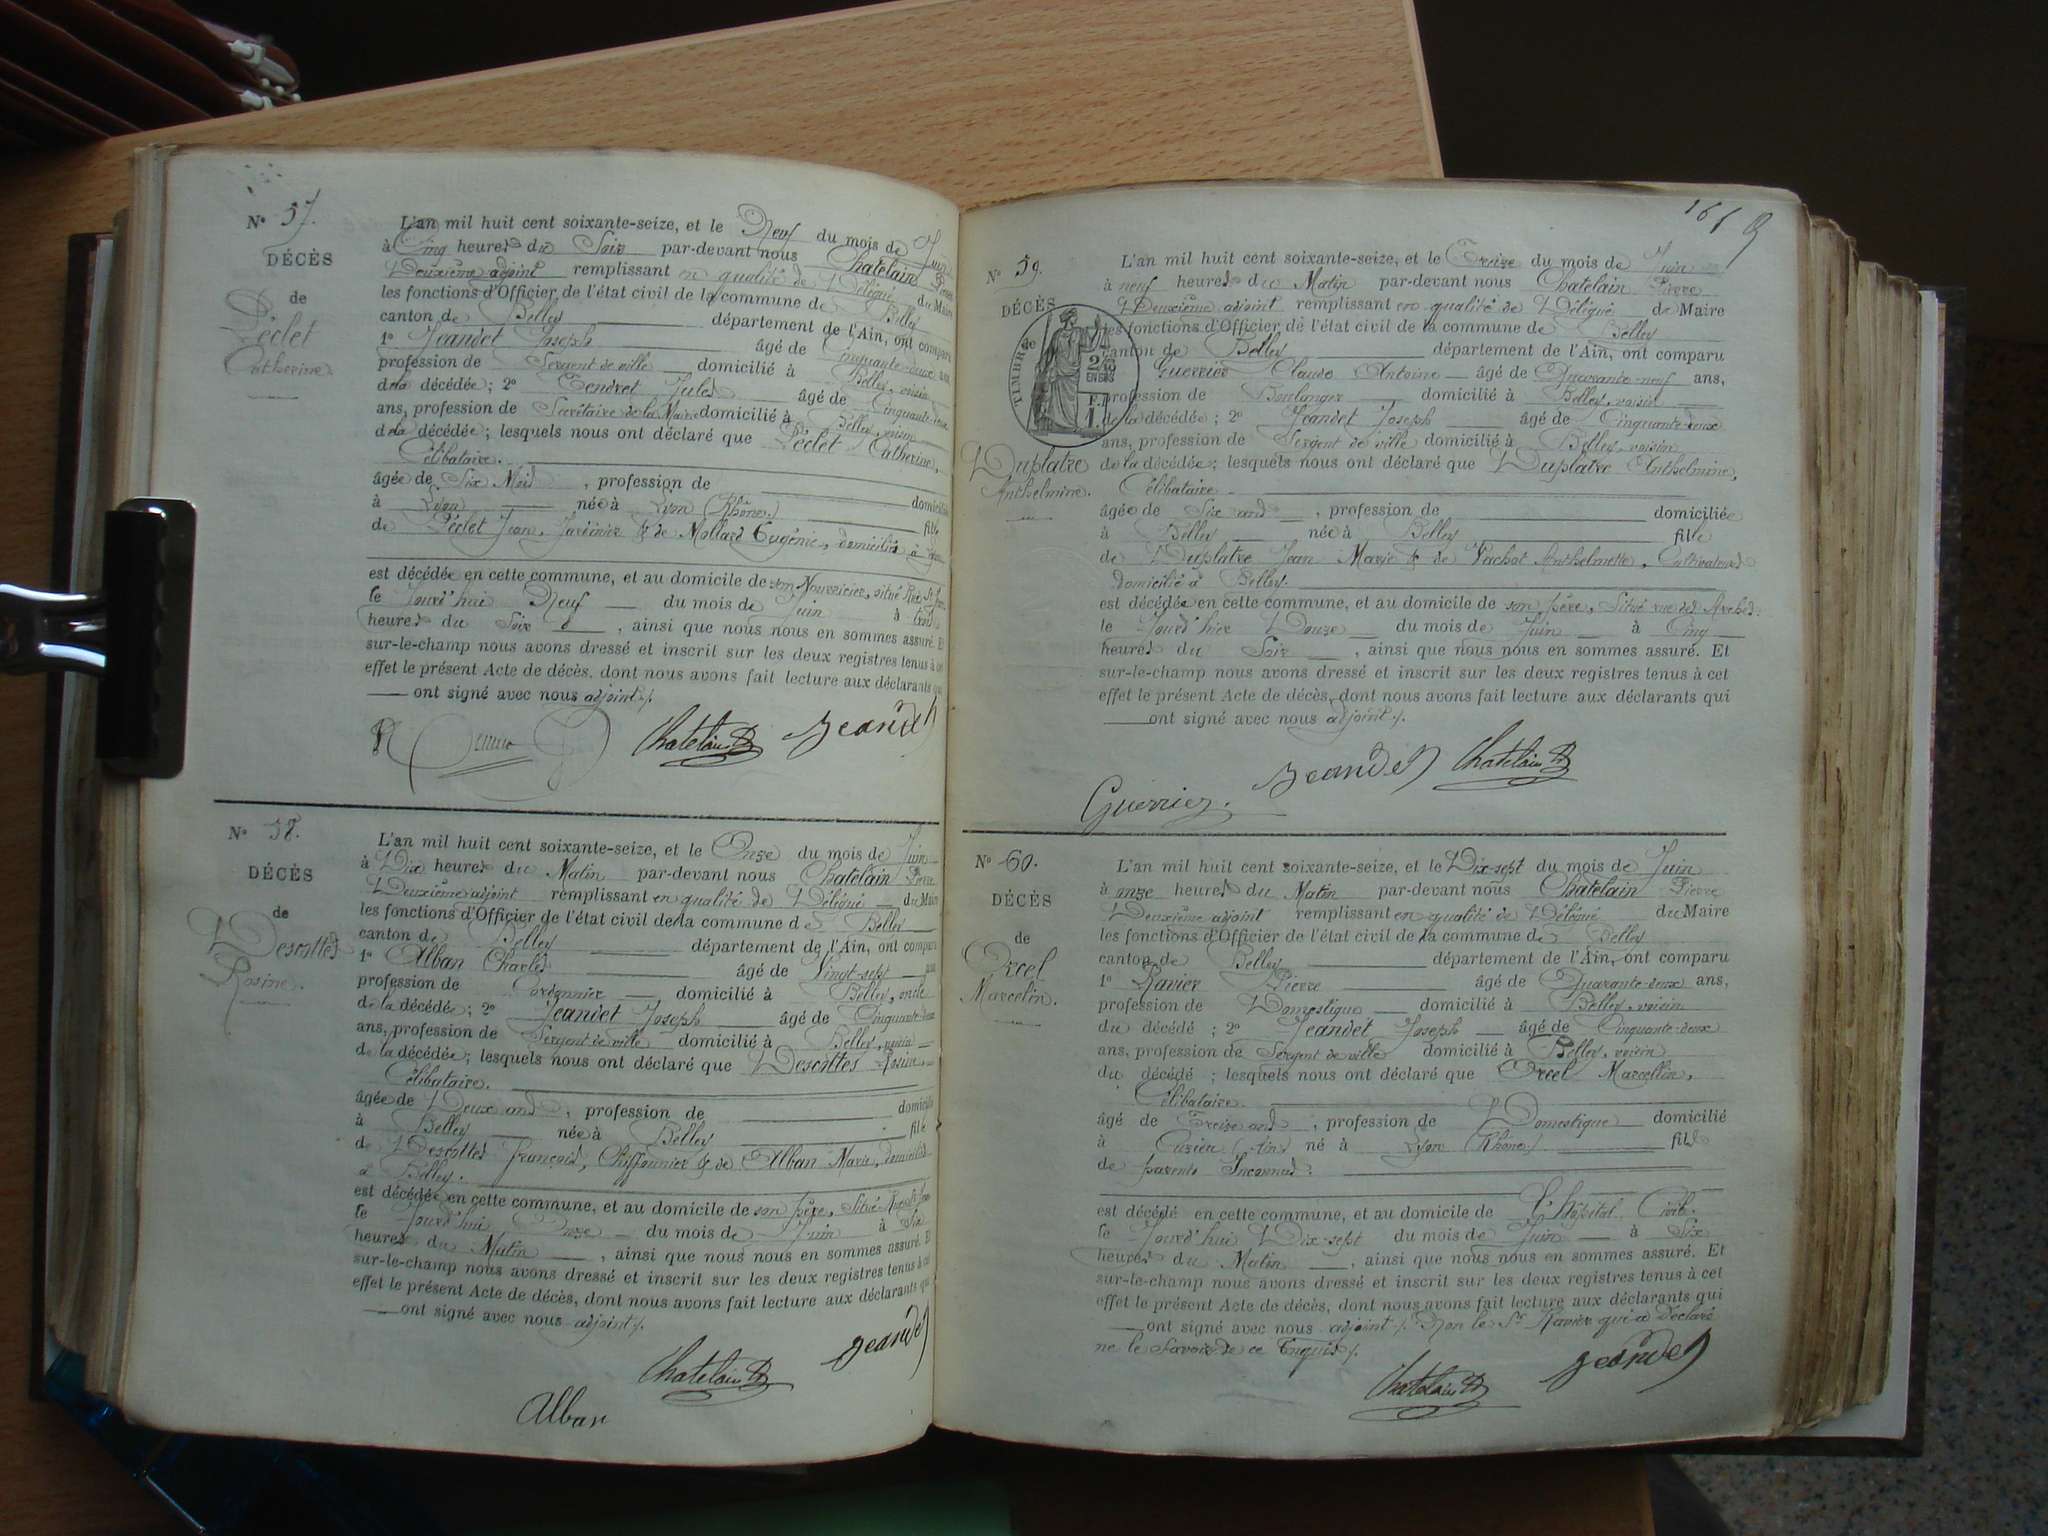 N° 57.
DÉCÈS
de
Péclet
Catherine.
L'an mil huit cent soixante-seize, et le Neuf du mois de Juin
à Cinq heures du Soir par-devant nous Chatelain Pierre
Deuxième adjoint remplissant en qualité de Délégué du Maire
les fonctions d'Officier de l'état civil de la commune de Belley
canton de Belley département de l'Ain, ont comparu
1° Jeandet Joseph âgé de Cinquante-deux ans,
profession de Sergent de ville domicilié à Belley, voisin
de la décédée; 2° Tendret Jules âgé de Cinquante-deux
ans, profession de Secrétaire de la Mairie domicilié à Belley, voisin
de la décédée; lesquels nous ont déclaré que Péclet Catherine,
Célibataire.
âgée de Six Mois, profession de domiciliée
à Lyon née à Lyon (Rhône.) fille
de Péclet Jean, Jardinier & de Mollard Eugénie, domiciliés à Lyon
est décédée en cette commune, et au domicile de son Nourricier, situé Rue St Jean
le Jourd'hui Neuf du mois de Juin à trois
heures du Soir, ainsi que nous nous en sommes assuré. Et
sur-le-champ nous avons dressé et inscrit sur les deux registres tenus à cet
effet le présent Acte de décès, dont nous avons fait lecture aux déclarants qui
ont signé avec nous adjoint./.
Chatelain P Jeandet
N° 58.
DÉCÈS
de
Descottes
Rosine.
L'an mil huit cent soixante-seize, et le Onze du mois de Juin
à Dix heures du Matin par-devant nous Chatelain Pierre
Deuxième adjoint remplissant en qualité de Délégué du Maire
les fonctions d'Officier de l'état civil de la commune de Belley
canton de Belley département de l'Ain, ont comparu
1° Alban Charles âgé de Vingt-sept ans
profession de Cordonnier domicilié à Belley, oncle
de la décédée; 2° Jeandet Joseph âgé de Cinquante-deux
ans, profession de Sergent de ville domicilié à Belley, voisin
de la décédée; lesquels nous ont déclaré que Descottes Rosine,
Célibataire.
âgée de Deux ans, profession de domiciliée
à Belley née à Belley fille
de Descottes François, Chiffonnier & de Alban Marie, domiciliés
à Belley.
est décédée en cette commune, et au domicile de son père, Situé Rue St Jean
le Jourd'hui Onze du mois de Juin à Six
heures du Matin, ainsi que nous nous en sommes assuré. Et
sur-le-champ nous avons dressé et inscrit sur les deux registres tenus à cet
effet le présent Acte de décès, dont nous avons fait lecture aux déclarants qui
ont signé avec nous adjoint./.
Chatelain P Jeandet
Alban
N° 59.
DÉCÈS
de
TIMBRE
2/10
EN SUS
Duplatre
Anthelmine.
L'an mil huit cent soixante-seize, et le Treize du mois de Juin
à neuf heures du Matin par-devant nous Chatelain Pierre
Deuxième adjoint remplissant en qualité de Délégué du Maire
les fonctions d'Officier de l'état civil de la commune de Belley
canton de Belley département de l'Ain, ont comparu
Guerrier Claude Antoine âgé de Quarante-neuf ans,
profession de Boulanger domicilié à Belley, voisin
de la décédée; 2° Jeandet Joseph âgé de Cinquante-deux
ans, profession de Sergent de ville domicilié à Belley, voisin
de la décédée; lesquels nous ont déclaré que Duplatre Anthelmine,
Célibataire
âgée de Six ans, profession de domiciliée
à Belley née à Belley fille
de Duplatre Jean Marie & de Anthelmette, Cultivateurs
domicilié à Belley.
est décédée en cette commune, et au domicile de son père, Situé rue des Arches.
le Jourd'hier Douze du mois de Juin à Cinq
heures du Soir, ainsi que nous nous en sommes assuré. Et
sur-le-champ nous avons dressé et inscrit sur les deux registres tenus à cet
effet le présent Acte de décès, dont nous avons fait lecture aux déclarants qui
ont signé avec nous adjoint./.
Jeandet Chatelain P
Guerrier.
N° 60.
DÉCÈS
de
Orcel
Marcelin.
L'an mil huit cent soixante-seize, et le Dix-sept du mois de Juin
à onze heures du Matin par-devant nous Chatelain Pierre
Deuxième adjoint remplissant en qualité de Délégué du Maire
les fonctions d'Officier de l'état civil de la commune de Belley
canton de Belley département de l'Ain, ont comparu
1° Ravier Pierre âgé de Quarante-deux ans,
profession de Domestique domicilié à Belley, voisin
du décédé; 2° Jeandet Joseph âgé de Cinquante-deux
ans, profession de Sergent de ville domicilié à Belley, voisin
du décédé; lesquels nous ont déclaré que Orcel Marcellin,
Célibataire.
âgé de Treize ans, profession de Domestique domicilié
à Cuzieu (Ain) né à Lyon (Rhône) fils
de parents Inconnus.
est décédé en cette commune, et au domicile de L'Hôpital Civil.
le Jourd'hui Dix-sept du mois de Juin à Six
heures du Matin, ainsi que nous nous en sommes assuré. Et
sur-le-champ nous avons dressé et inscrit sur les deux registres tenus à cet
effet le présent Acte de décès, dont nous avons fait lecture aux déclarants qui
ont signé avec nous adjoint./. Non le Sr Ravier qui a Déclaré
ne le Savoir de ce Enquis./.
Chatelain P Jeandet